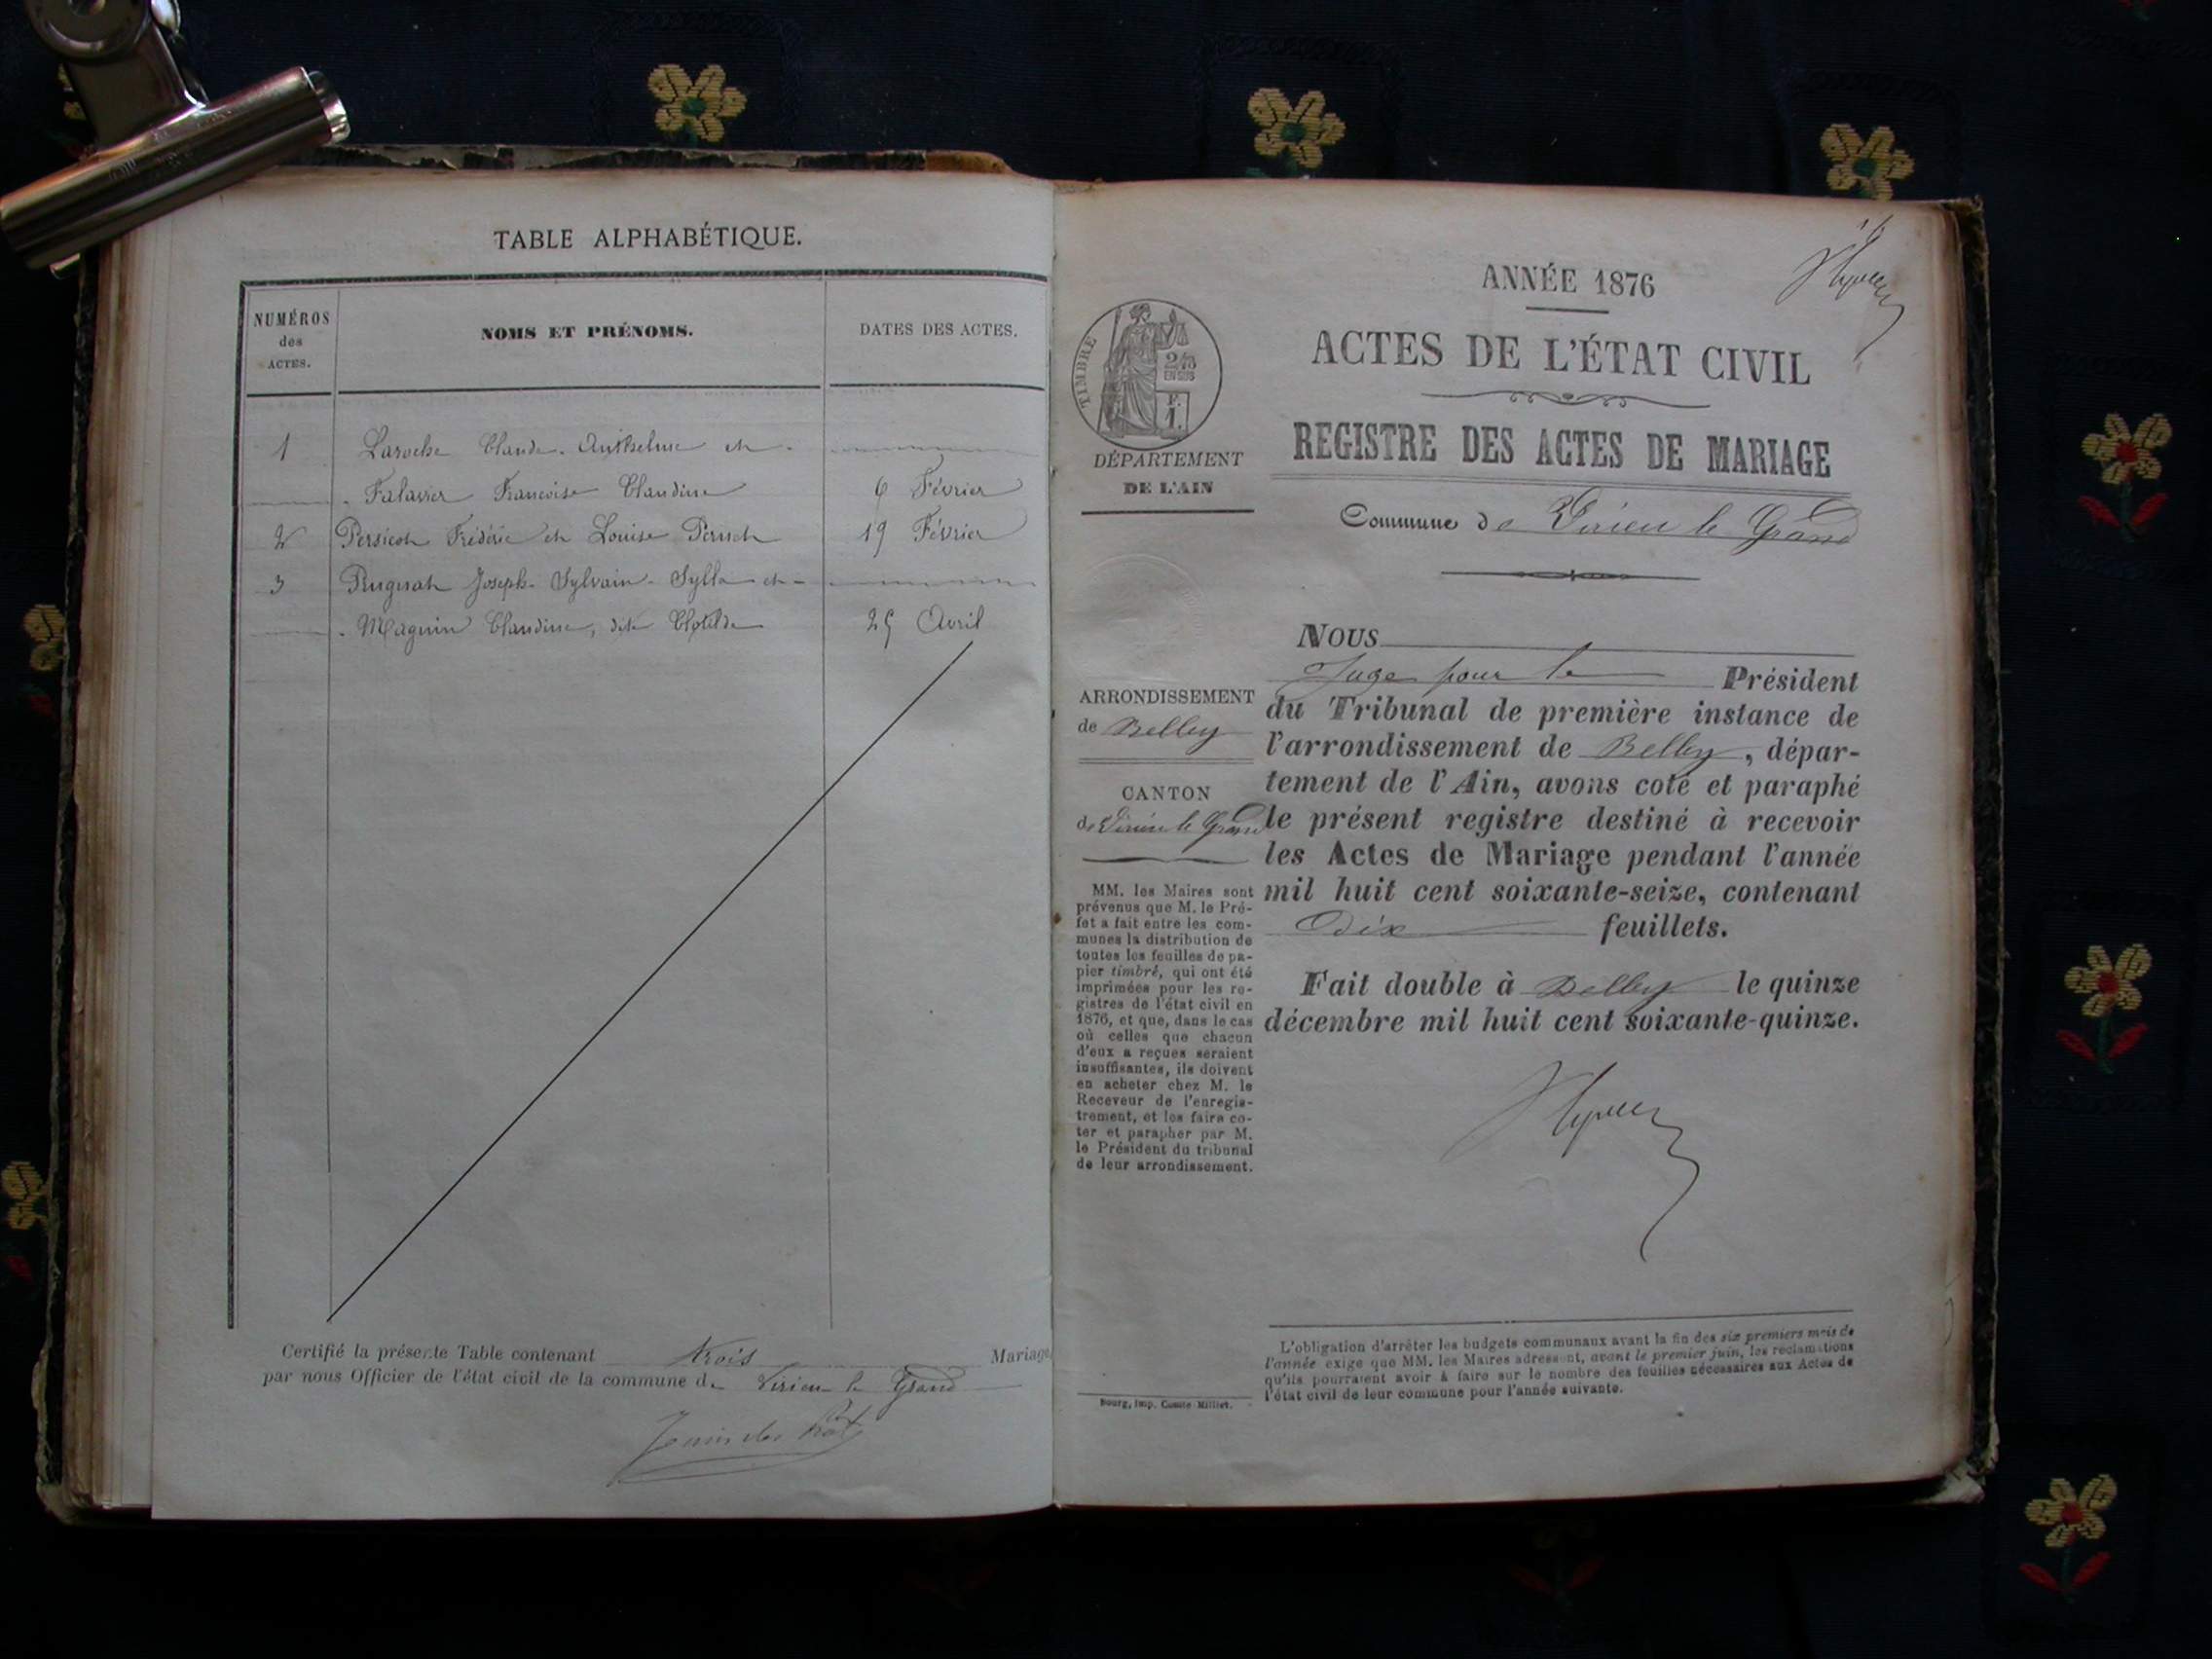 TABLE ALPHABÉTIQUE.
NUMÉROS
des
ACTES.
NOMS ET PRÉNOMS.
DATES DES ACTES.
1 Laroche Claude Anthelme et
Falavier Francoise Claudine 6 Février
2 Persicot Frédéric et Louise 19 Février
3 Joseph Sylvain Sylla et
Magnin Claudine, dite Clotilde 25 Avril
Certifié la présente Table contenant trois Mariages
par nous Officier de l'état civil de la commune de Virieu le Grand
ANNÉE 1876
ACTES DE L'ÉTAT CIVIL
REGISTRE DES ACTES DE MARIAGE
Commune de Virieu le Grand
TIMBRE
2/10
EN SUS
F.
1.
DÉPARTEMENT
DE L'AIN
ARRONDISSEMENT
de Belley
CANTON
de Virieu le Grand
MM. les Maires sont
prévenus que M. le Pré-
fet a fait entre les com-
munes la distribution de
toutes les feuilles de pa-
pier timbré, qui ont été
imprimées pour les re-
gistres de l'état civil en
1876, et que, dans le cas
où celles que chacun
d'eux a reçues seraient
insuffisantes, ils doivent
en acheter chez M. le
Receveur de l'enregis-
trement, et les faire co-
ter et parapher par M.
le Président du tribunal
de leur arrondissement.
Bourg, imp. Comte Milliet.
NOUS
Juge pour le Président
du Tribunal de première instance de
l'arrondissement de Belley, dépar-
tement de l'Ain, avons coté et paraphé
le présent registre destiné à recevoir
les Actes de Mariage pendant l'année
mil huit cent soixante-seize, contenant
Dix feuillets.
Fait double à Belley le quinze
décembre mil huit cent soixante-quinze.
L'obligation d'arrêter les budgets communaux avant la fin des six premiers mois de
l'année exige que MM. les Maires adressent, avant le premier juin, les réclamations
qu'ils pourraient avoir à faire sur le nombre des feuilles nécessaires aux Actes de
l'état civil de leur commune pour l'année suivante.